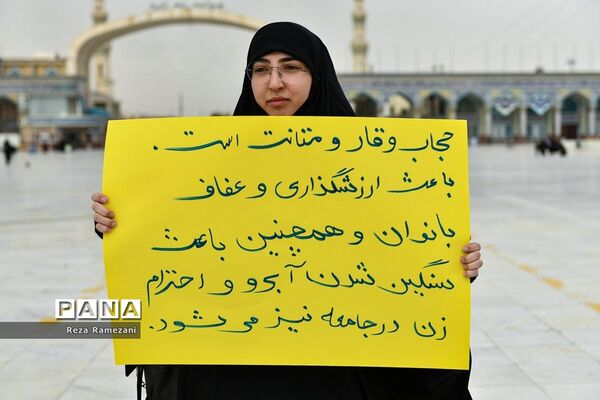 حجاب وقار و متانت است.
باعث ارزشگذاری و عفاف
بانوان و همچنین باعث
سنگین شدن آبرو و احترام
زن در جامعه نیز می‌شود.
PANA
Reza Ramezani